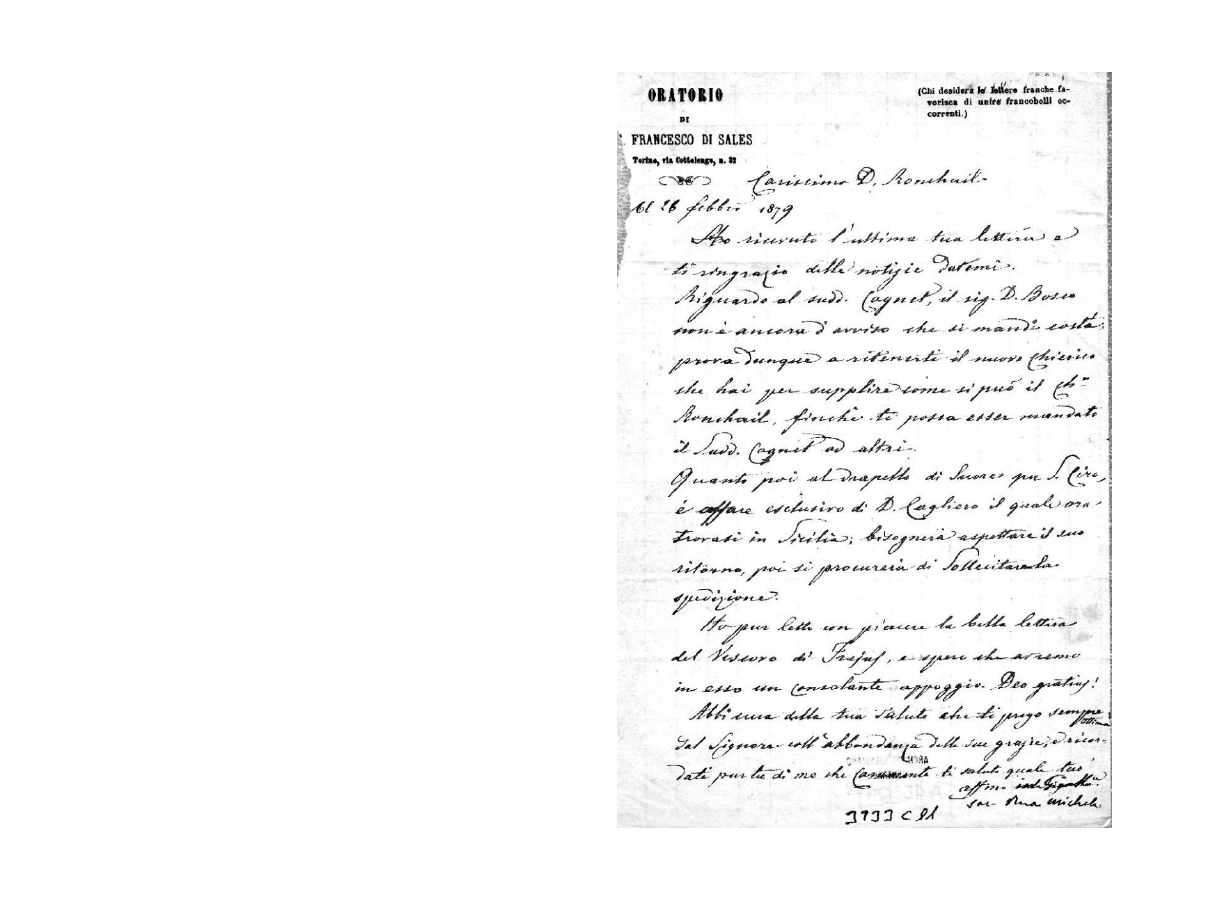 ORATORIO
DI
FRANCESCO DI SALES
Torino, via Cottolengo, n. 32
(Chi desidera le lettere franche fa-
vorisca di unire francobolli oc-
correnti.)
Carissimo D. Ronchail
26 febbr 1879
Ho ricevuto l'ultima tua lettera e
ti ringrazio delle notizie datemi.
Riguardo al sudd. Cagnet, il sig. D. Bosco
non è ancora d'avviso che si mandi costà:
prova dunque a ritenerti il nuovo Chierico
che hai per supplire come si può il Ch.
Ronchail, finchè ti possa esser mandato
il Sudd. Cagnet od altri.
Quanto poi al drapello di Suore per S. Ciro,
è affare esclusivo di D. Cagliero il quale ora
trovasi in Sicilia; bisognerà aspettare il suo
ritorno, poi si procurerà di sollecitare la
spedizione.
Ho pur letto con piacere la bella lettera
del Vescovo di Frejus, e spero che avremo
in esso un consolante appoggio. Deo gratias!
Abbi cura della tua salute che ti prego sempre
ottima
dal Signore coll'abbondanza delle sue grazie, e ricor-
dati pur tu di me che caramente ti saluto quale tuo
affmo in
sac. Rua Michele
3733 C 11